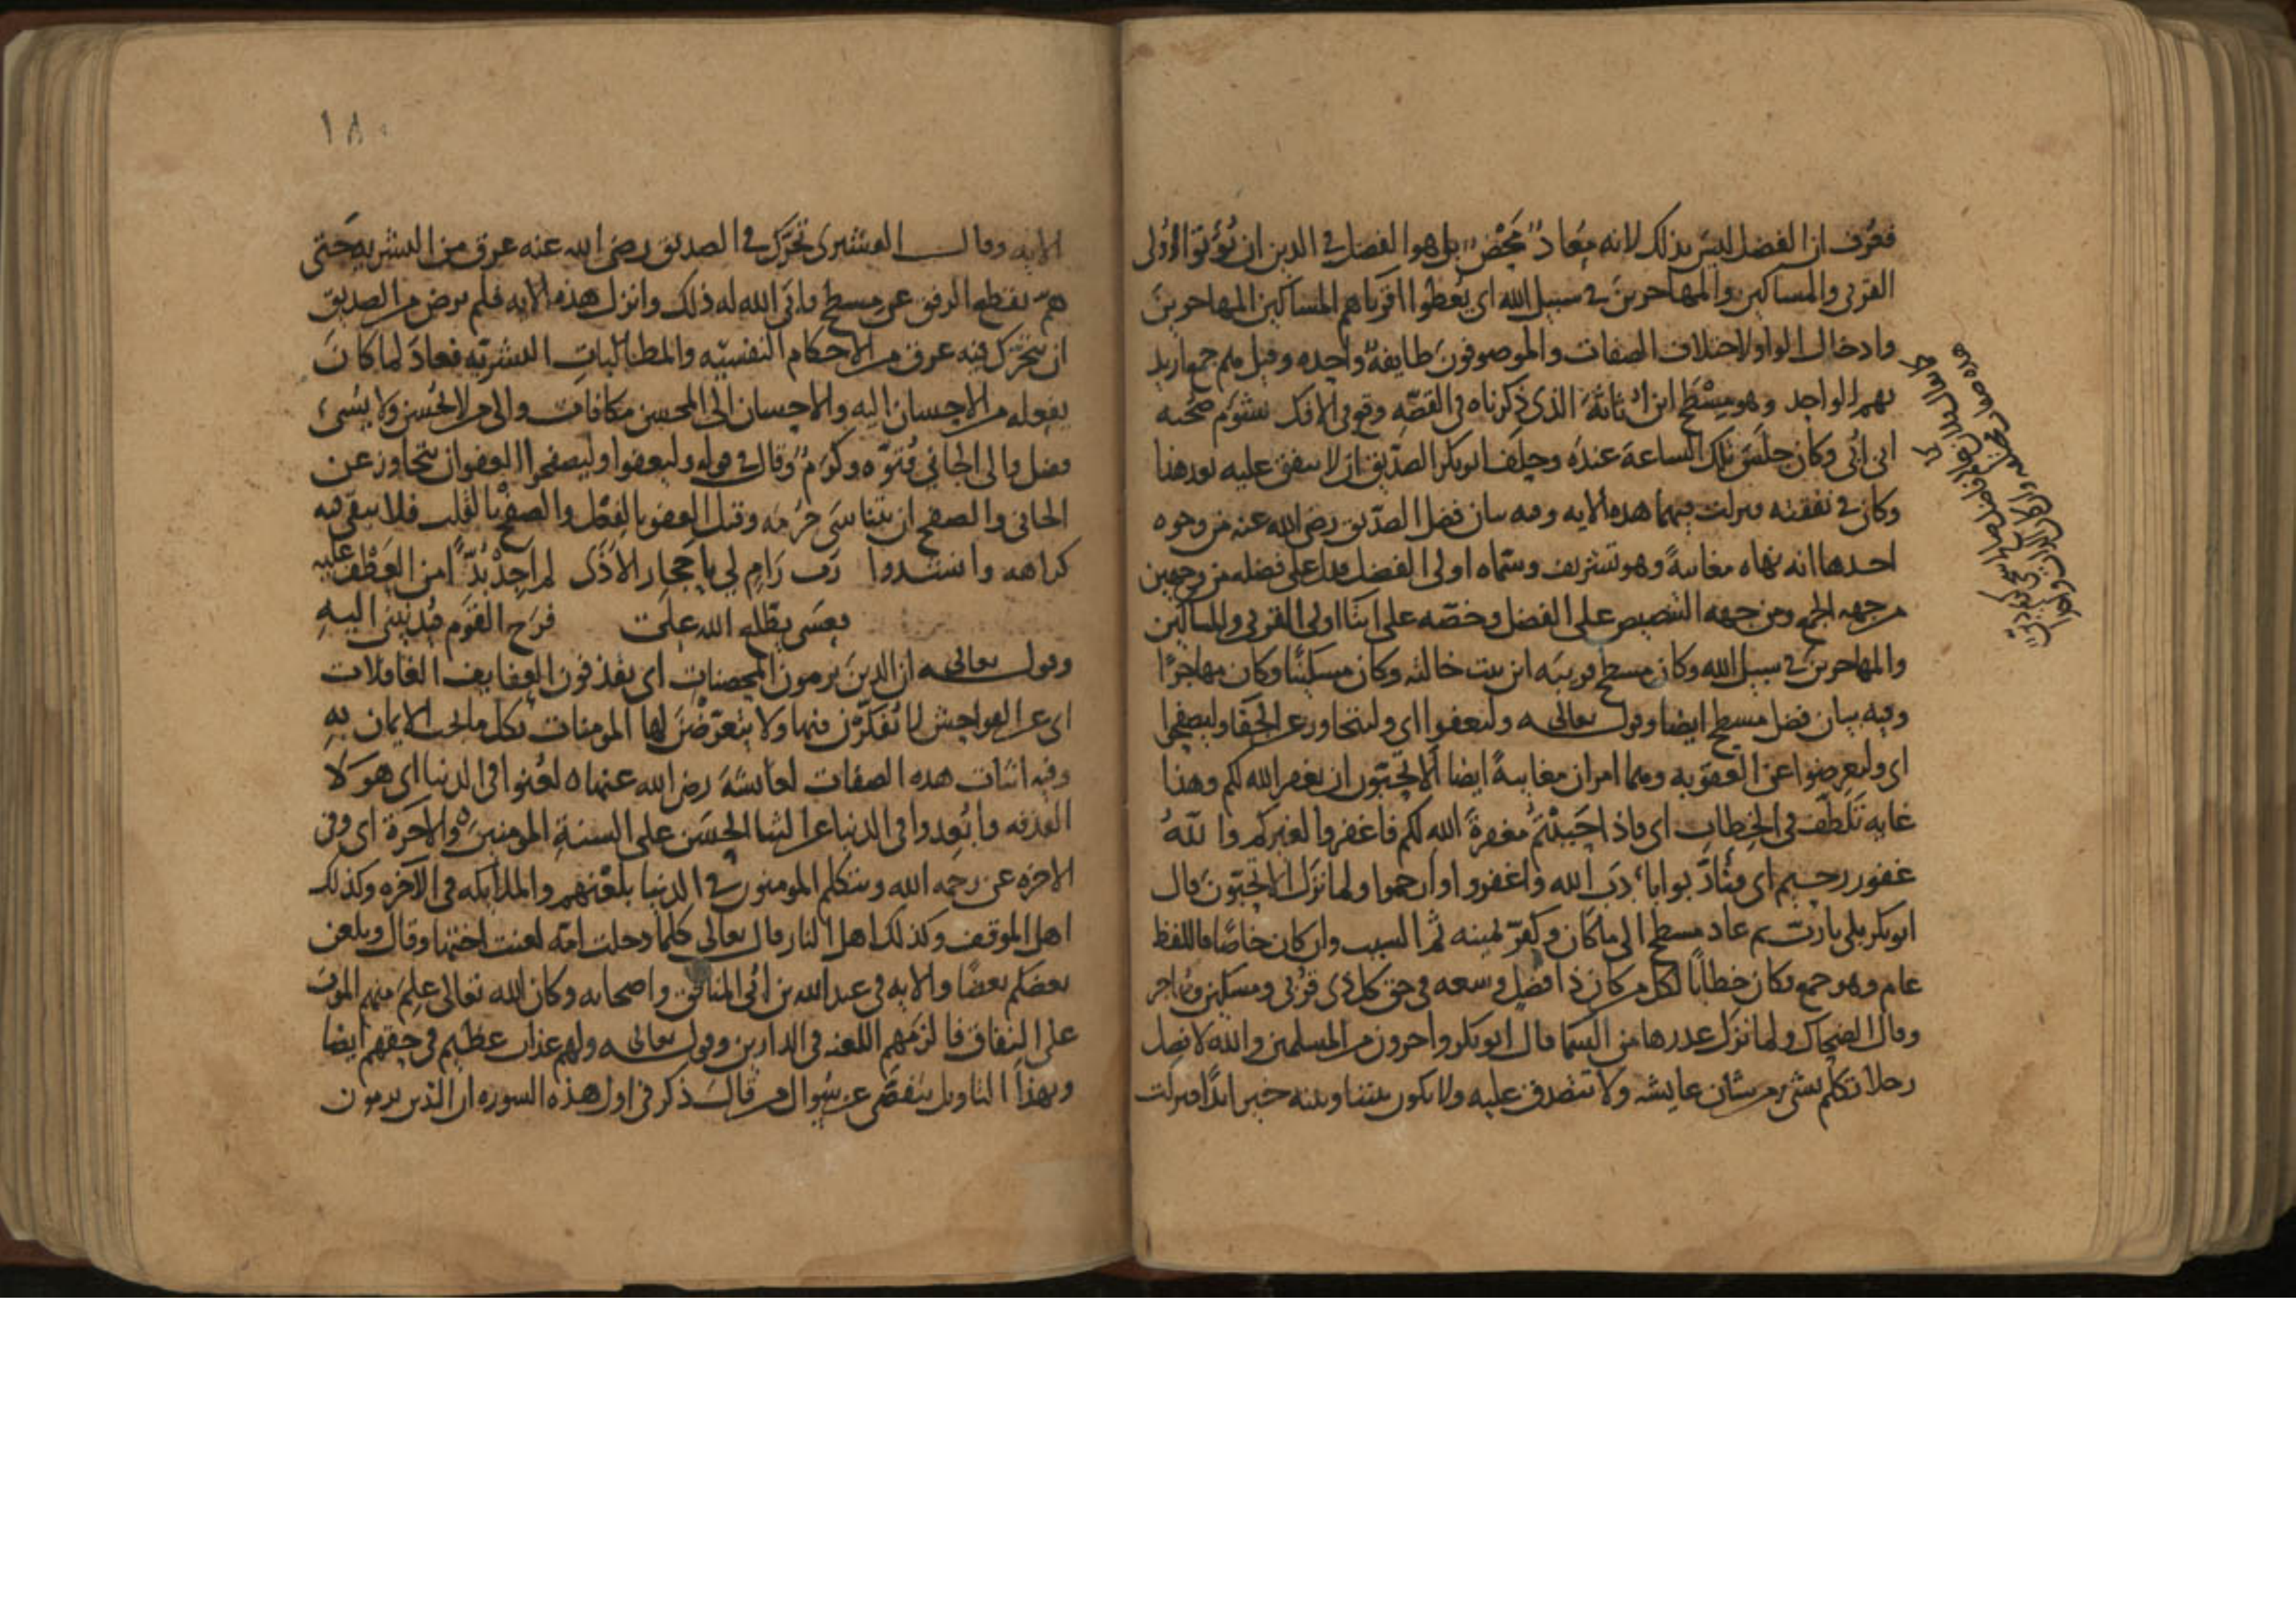 فعرف ان الفضل ليس بذلك لانه مُعادٌ مَحْضٌ بل هو الفضل في الدين ان يُؤتوا اولى
القربى والمساكين والمهاجرين في سبيل الله اى يُعطُوا اقرباهم المساكين المهاجرين
وادخال الواو لاختلاف الصفات والموصوفون طايفةٌ واحده وقيل
بهم الواحد وهو مِسْطَح ابن اُثاثة الذى ذكرناه فى القصّه وقع فى الافك بشؤم صحبه
ابى اُبَىّ وكان جلس تلك الساعة عنده وحلف ابو بكر الصدّيق ان لا ينفق عليه بعد هذا
وكان فى نفقته فنزلت فيهما هذه الايه وفيه بيان فضل الصدّيق رضى الله عنه من وجوه
احدها انه نهاه معاتبةً وهو تشريف وسمّاه اولى الفضل فدل على فضله من وجهين
من جهه الجمع ومن جهه التنصيص على الفضل وحضّه على ايتا اولى القربى والمساكين
والمهاجرين فى سبيل الله وكان مسطح قريبَه ابن بنت خالته وكان مسكينًا وكان مهاجرًا
وفيه بيان فضل مسطح ايضا وقوله تعالى وليعفوا اى وليتجاوزوا عن الجفا وليصفحوا
اى وليعرضوا عن العقوبه وهما امران معاتبةً ايضا ألا تحبّون ان يغفر الله لكم وهذا
غايه تَلَطُّف فى الخطاب اى فاذا احببتم مغفرةَ الله لكم فاغفروا لغيركم والله
غفور رحيم اى فتأدّبوا باَدَب الله واغفروا وارحموا ولما نزل الا تحبّون قال
ابو بكر بلى يا ربّ ثم عاد مسطح الى ما كان وكفّر يمينه ثم السبب وان كان خاصًّا فاللفظ
عام وهو جمع فكان خطابًا لكل من كان ذا فضل وسعه فى حق كل ذى قربى ومسكين ومهاجر
وقال الضحاك ولما نزل عذرها من السما قال ابو بكر واخرون من المسلمين والله لا نصل
رجلا تكلم بشىء من شان عايشه ولا نتصدق عليه ولا يكون بيننا وبينه خير ابدًا فنزلت
١٨٠
الايه وقال القشيرى تحرّك فى الصديق رضى الله عنه عرق من البشريه حتى
همّ بقطع الرفق عن مسطح فابى الله له ذلك وانزل هذه الايه فلم يرض من الصديق
ان يتحرّك فيه عرق من الاحكام النفسيّه والمطالبات البشريّه فعاد لما كان
يفعله من الاحسان اليه والاحسان الى المحسن مكافات والى من لا يُحسن ولا يُسىء
فضل والى الجانى فُتوّه وكَرَم وقال فى قوله وليعفوا وليصفحوا العفو ان تتجاوز عن
الجانى والصفح ان تتناسى جُرمَه وقيل العفو بالفعل والصفح بالقلب فلا يبقى فيه
كراهه وانشدوا رُب رَامٍ لى باَحجار الاذى لم اجد بُدًّا من العَطْف عليه
فعسى يطّلع الله على فرح القوم فيُدنينى اليهِ
وقوله تعالى ان الذين يرمون المحصنات اى يقذفون العفايف الغافلات
اى عن الفواحش لا تُفكّرن فيها ولا يتعرّضْنَ لها المومنات بكل ما يجب الايمان به
وفيه اثبات هذه الصفات لعايشةَ رضى الله عنها لُعنوا فى الدنيا اى هولا
القذفه واُبعدوا فى الدنيا عن الثنا الحَسَن على السنةِ المومنين والاخرة اى وفى
الاخره عن رحمه الله ويتكلم المومنون فى الدنيا بلعْنهم والملايكه فى الآخره وكذلك
اهل الموقف وكذلك اهل النار قال تعالى كلما دخلت امّه لعنت اختها وقال ويلعن
بعضكم بعضًا والايه فى عبد الله بن اُبىّ المنافق واصحابه وكان الله تعالى عَلِمَ منهم الموتَ
على النفاق فالزَمَهم اللعنه فى الدارين وقوله تعالى ولهم عذاب عظيم فى حقهم ايضا
وبهذا التاويل يتفصّى عن سُوال من قالَ ذكر فى اول هذه السوره ان الذين يرمون